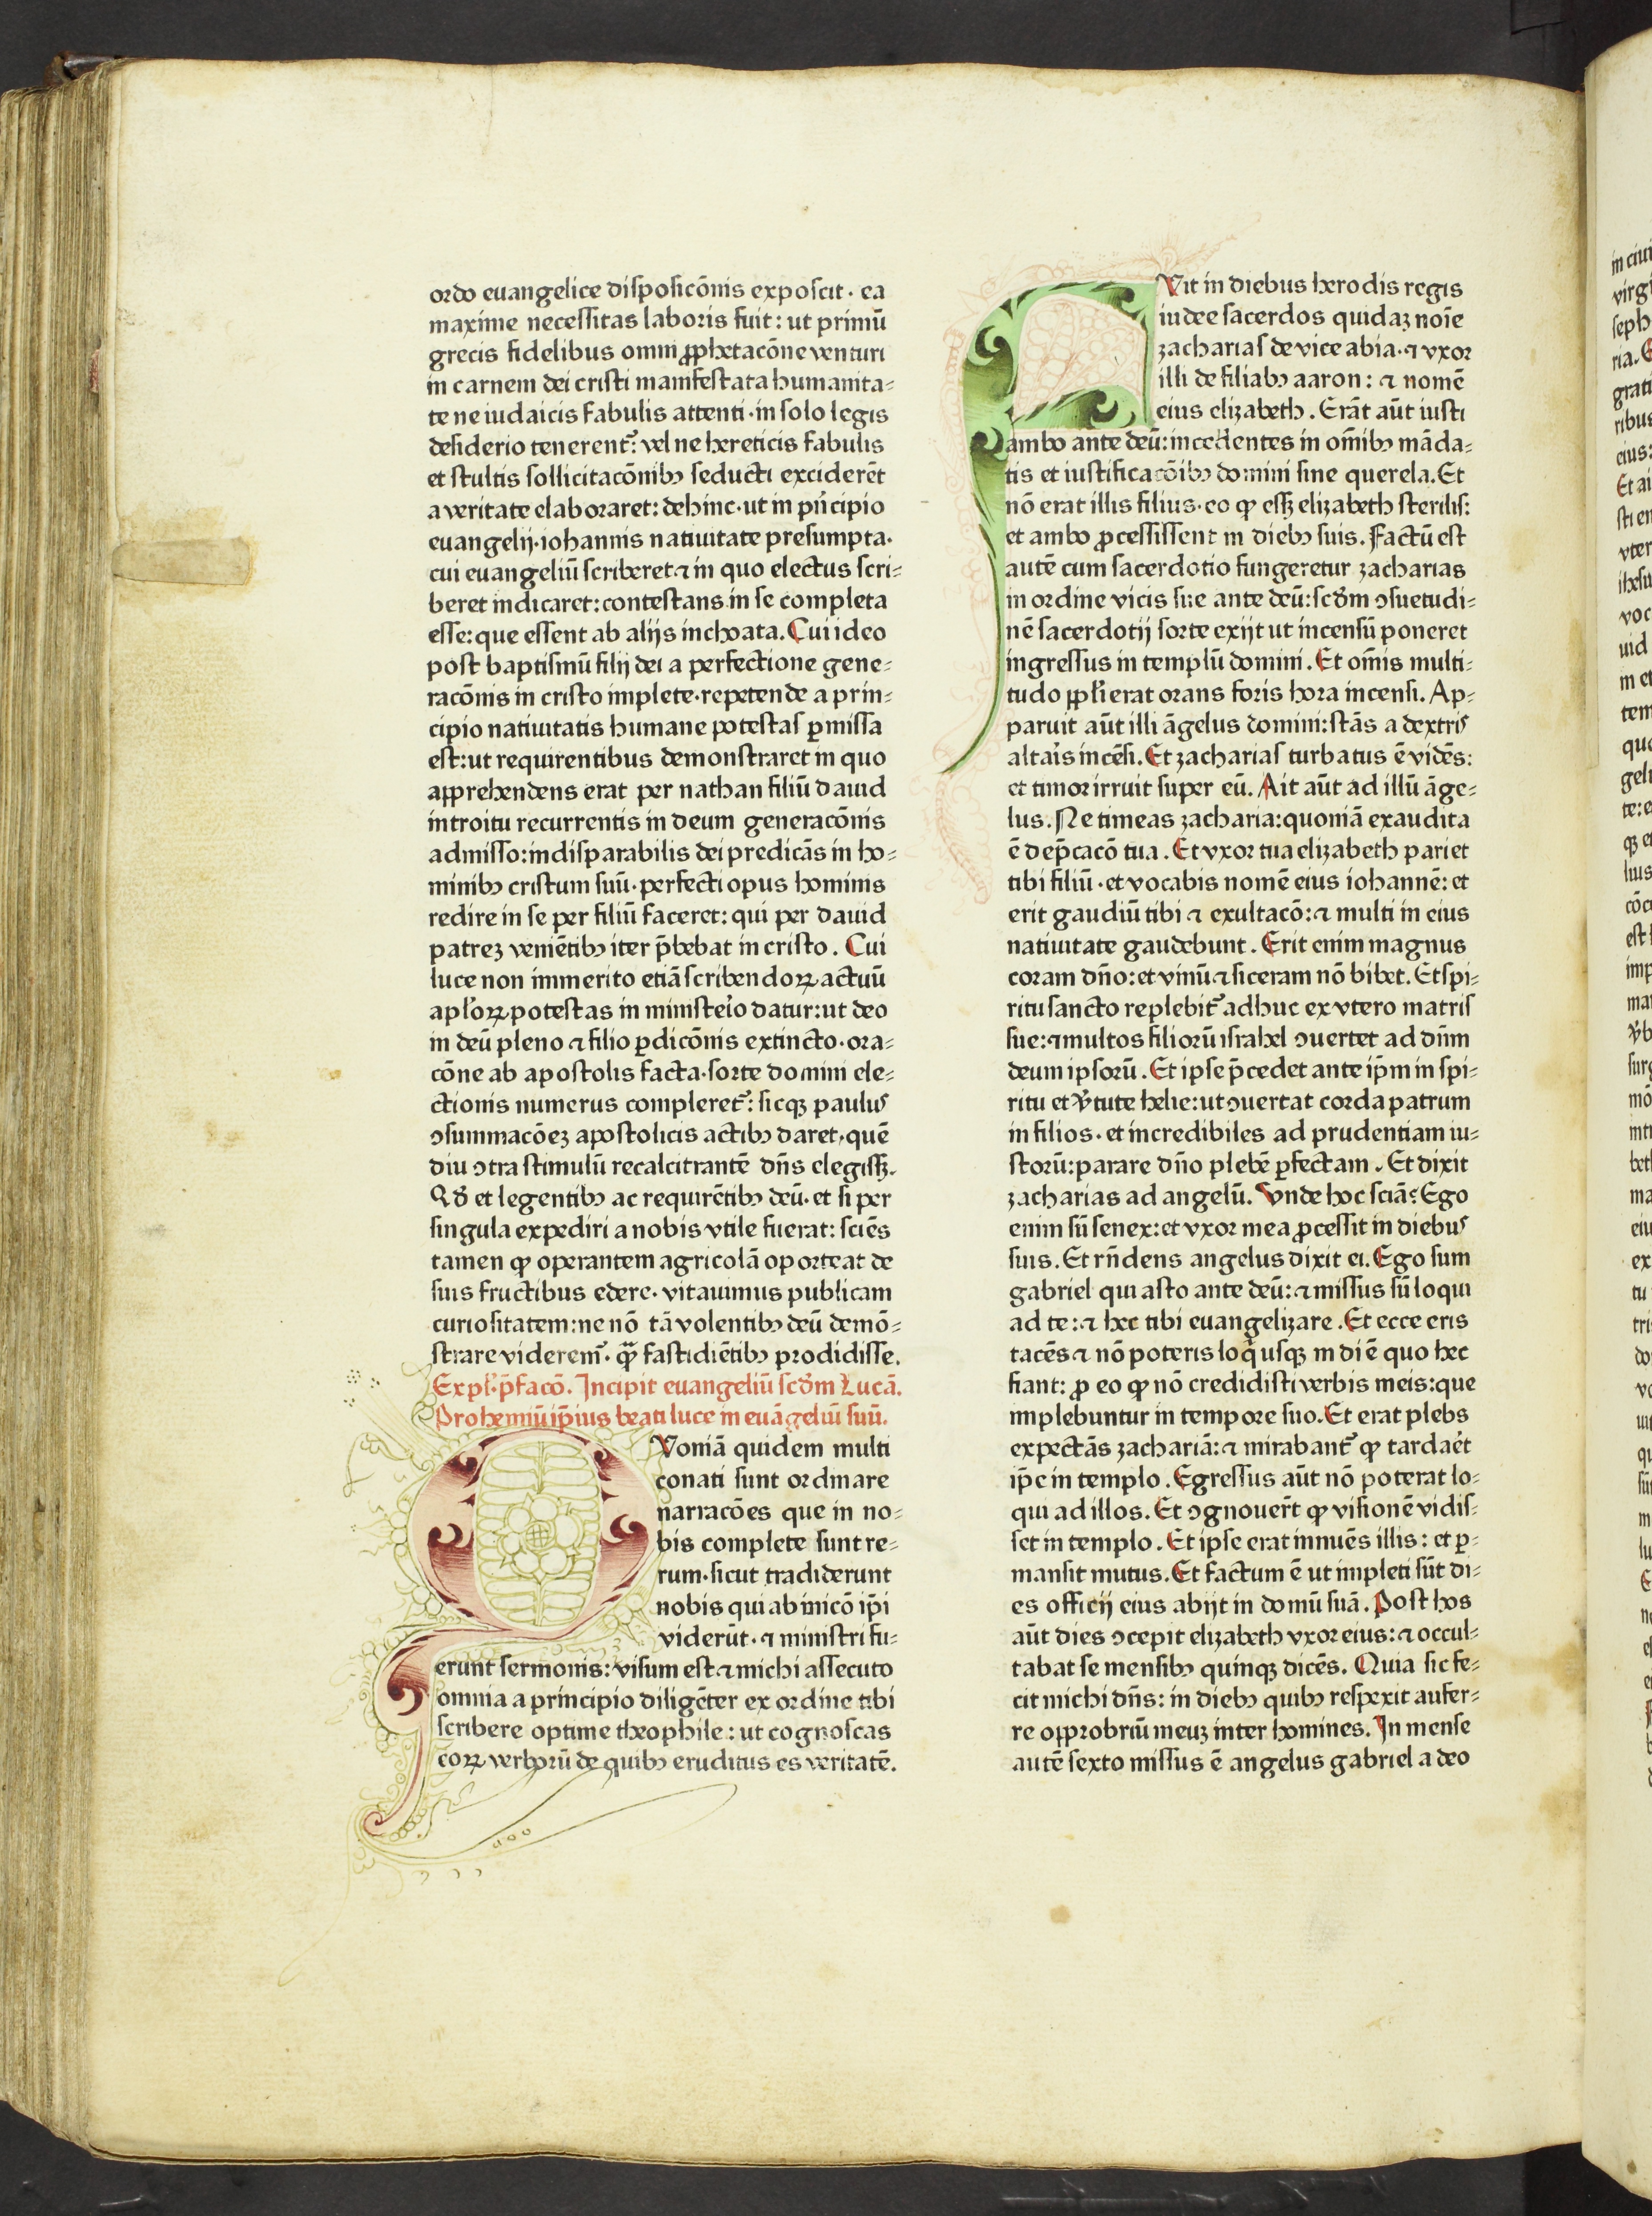 ordo euangelice disposicōnis exposcit · ea
maxime necessitas laboris fuit : ut primū
grecis fidelibus omni ꝓphetacōne venturi
in carnem dei cristi manifestata humanita⸗
te ne iudaicis fabulis attenti · in solo legis
desiderio tenerent᷑ : vel ne hereticis fabulis
et stultis sollicitacōnibꝫ seducti exciderēt
a veritate elaboraret : dehinc · ut in pⁱncipio
euangelij · iohannis natiuitate presumpta ·
cui euangeliū scriberet ⁊ in quo electus scri⸗
beret indicaret : contestans in se completa
esse : que essent ab alijs inchoata . Cui ideo
post baptismū filij dei a perfectione gene⸗
racōnis in cristo implete · repetende a prin⸗
cipio natiuitatis humane potestas ꝑmissa
est : ut requirentibus demonstraret in quo
apprehendens erat per nathan filiū dauid
introitu recurrentis in deum generacōnis
admisso : indisparabilis dei predicās in ho⸗
minibꝫ cristum suū · perfecti opus hominis
redire in se per filiū faceret : qui per dauid
patreꝫ veniētibꝫ iter p̄bebat in cristo . Cui
luce non immerito etiā scribendoꝝ actuū
apl'oꝝ potestas in ministeⁱo datur : ut deo
in deū pleno ⁊ filio ꝑdicōnis extincto · ora⸗
cōne ab apostolis facta · sorte domini ele⸗
ctionis numerus compleret᷑ : sicqꝫ paulus
ꝯsummacōeꝫ apostolicis actibꝫ daret, quē
diu ꝯtra stimulū recalcitrantē dn̄s elegissꝫ.
Qđ et legentibꝫ ac requirētibꝫ deū · et si per
singula expediri a nobis vtile fuerat : sciēs
tamen ꝙ operantem agricolā oporteat de
suis fructibus edere · vitauimus publicam
curiositatem : ne nō tā volentibꝫ deū demō⸗
strare videremᷣ · qᷓ fastidiētibꝫ prodidisse.
Expl' · p̄facō . Incipit euangeliū scđm Lucā.
Prohemiū ip̄ius beati luce in euāgeliū suū.
QVoniā quidem multi
conati sunt ordinare
narracōes que in no⸗
bis complete sunt re⸗
rum · sicut tradiderunt
nobis qui ab inicō ip̄i
viderūt · ⁊ ministri fu⸗
erunt sermonis : visum est ⁊ michi assecuto
omnia a principio diligēter ex ordine tibi
scribere optime theophile : ut cognoscas
eoꝝ verborū de quibꝫ eruditus es veritatē.
FVit in diebus herodis regis
iudee sacerdos quidaꝫ noīe
zacharias de vice abia · ⁊ vxor
illi de filiabꝫ aaron : ⁊ nomē
eius elizabeth . Erāt aūt iusti
ambo ante deū : incedentes in om̄ibꝫ māda⸗
tis et iustificacōibꝫ domini sine querela . Et
nō erat illis filius · eo ꝙ essꝫ elizabeth sterilis :
et ambo ꝓcessissent in diebꝫ suis . Factū est
autē cum sacerdotio fungeretur zacharias
in ordine vicis sue ante deū : scđm ꝯsuetudi⸗
nē sacerdotij sorte exijt ut incensū poneret
ingressus in templū domini . Et om̄is multi⸗
tudo pp̄l'i erat orans foris hora incensi . Ap⸗
paruit aūt illi āgelus domini : stās a dextris
altaⁱs incēsi . Et zacharias turbatus ē vidēs :
et timor irruit super eū . Ait aūt ad illū āge⸗
lus . Ne timeas zacharia : quoniā exaudita
ē dep̄cacō tua . Et vxor tua elizabeth pariet
tibi filiū · et vocabis nomē eius iohannē : et
erit gaudiū tibi ⁊ exultacō : ⁊ multi in eius
natiuitate gaudebunt . Erit enim magnus
coram dn̄o : et vinū ⁊ siceram nō bibet . Et spi⸗
ritu sancto replebit᷑ adhuc ex vtero matris
sue : ⁊ multos filiorū israhel ꝯuertet ad dn̄m
deum ipsorū . Et ipse p̄cedet ante ip̄m in spi⸗
ritu et v̓tute helie : ut ꝯuertat corda patrum
in filios · et incredibiles ad prudentiam iu⸗
storū : parare dn̄o plebē ꝑfectam . Et dixit
zacharias ad angelū . Vnde hoc sciā ? Ego
enim sū senex : et vxor mea ꝓcessit in diebus
suis . Et rn̄dens angelus dixit ei . Ego sum
gabriel qui asto ante deū : ⁊ missus sū loqui
ad te : ⁊ hec tibi euangelizare . Et ecce eris
tacēs ⁊ nō poteris loqⁱ usqꝫ in diē quo hec
fiant : ꝓ eo ꝙ nō credidisti verbis meis : que
implebuntur in tempore suo . Et erat plebs
expectās zachariā : ⁊ mirabant᷑ ꝙ tardaēt
ip̄e in templo . Egressus aūt nō poterat lo⸗
qui ad illos . Et ꝯgnouer̄t ꝙ visionē vidis⸗
set in templo . Et ipse erat innuēs illis : et ꝑ⸗
mansit mutus . Et factum ē ut impleti sūt di⸗
es officij eius abijt in domū suā . Post hos
aūt dies ꝯcepit elizabeth vxor eius : ⁊ occul⸗
tabat se mensibꝫ quinqꝫ dicēs . Quia sic fe⸗
cit michi dn̄s : in diebꝫ quibꝫ respexit aufer⸗
re opprobriū meuꝫ inter homines . In mense
autē sexto missus ē angelus gabriel a deo